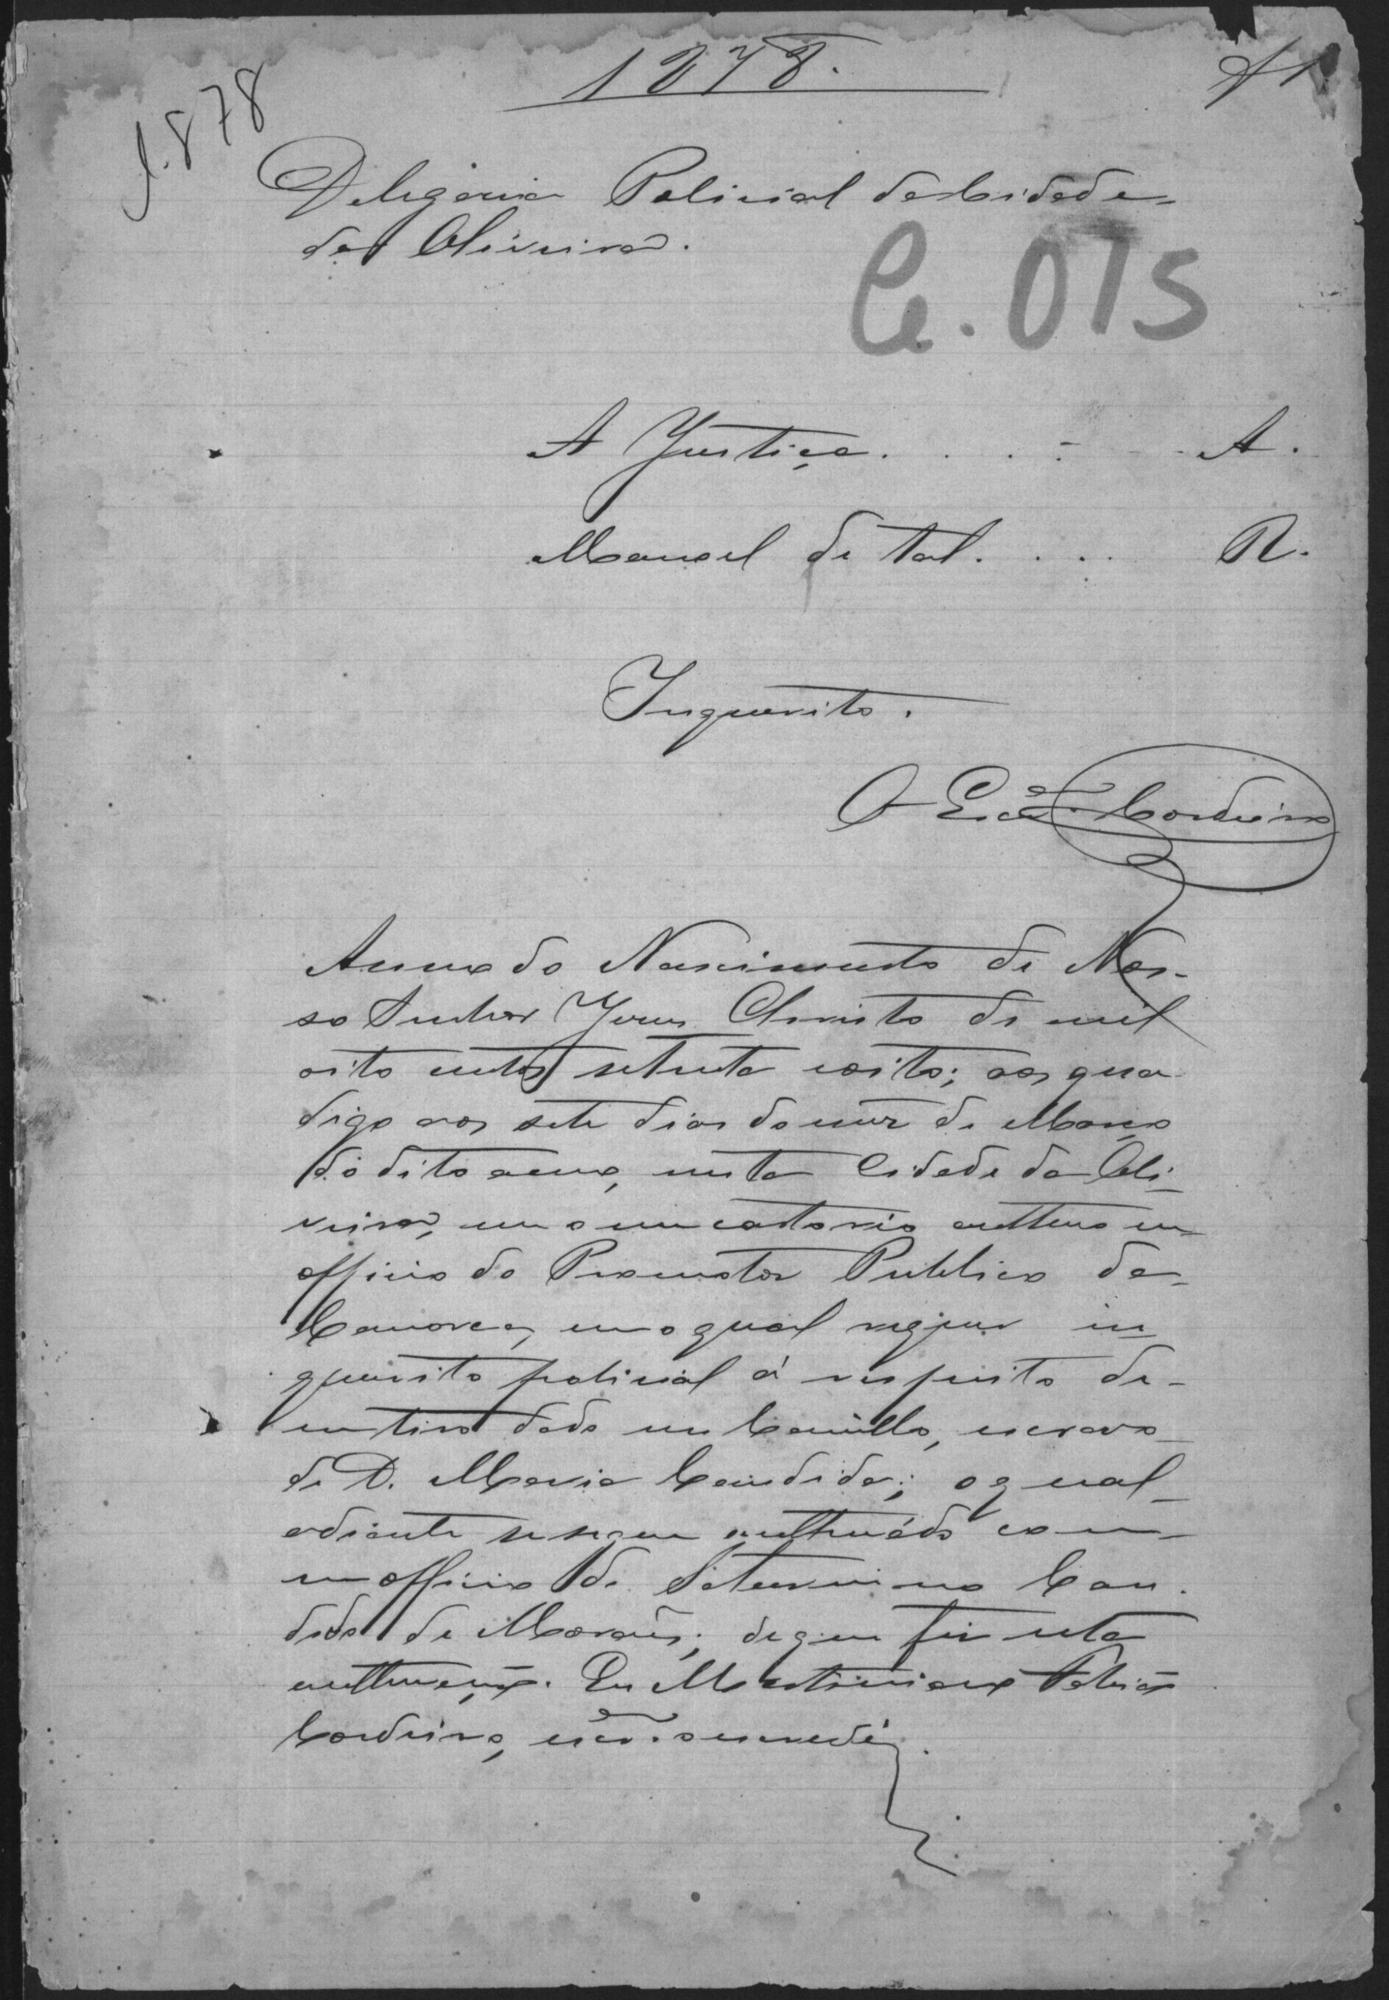 1878.
1.878
f 1
Delegacia Policial da Cidade
da Oliveira.
C. 015
A Justiça. . . . - A.
Manoel de tal. . . . R.
Inquerito.
O Escam. Cordeiro
Anno do Nascimento de Nos-
so Senhor Jesus Christo de mil
oito centos setenta e oito; aos qua
digo aos sete dias do mez de Março
do dito anno, nesta Cidade da Oli-
veira, em o meu cartorio authuo um
officio do Promotor Publico da
Comarca, em o qual requer in
querito policial á respeito de
um tiro dado em Camillo, escravo
de D. Maria Candida; o qual
adiante se segue authuádo com
um officio de Saturnino Can
dido de Moraes; do que fiz esta
authuação. Eu Martiniano
Cordeiro, escam. o escrevi.